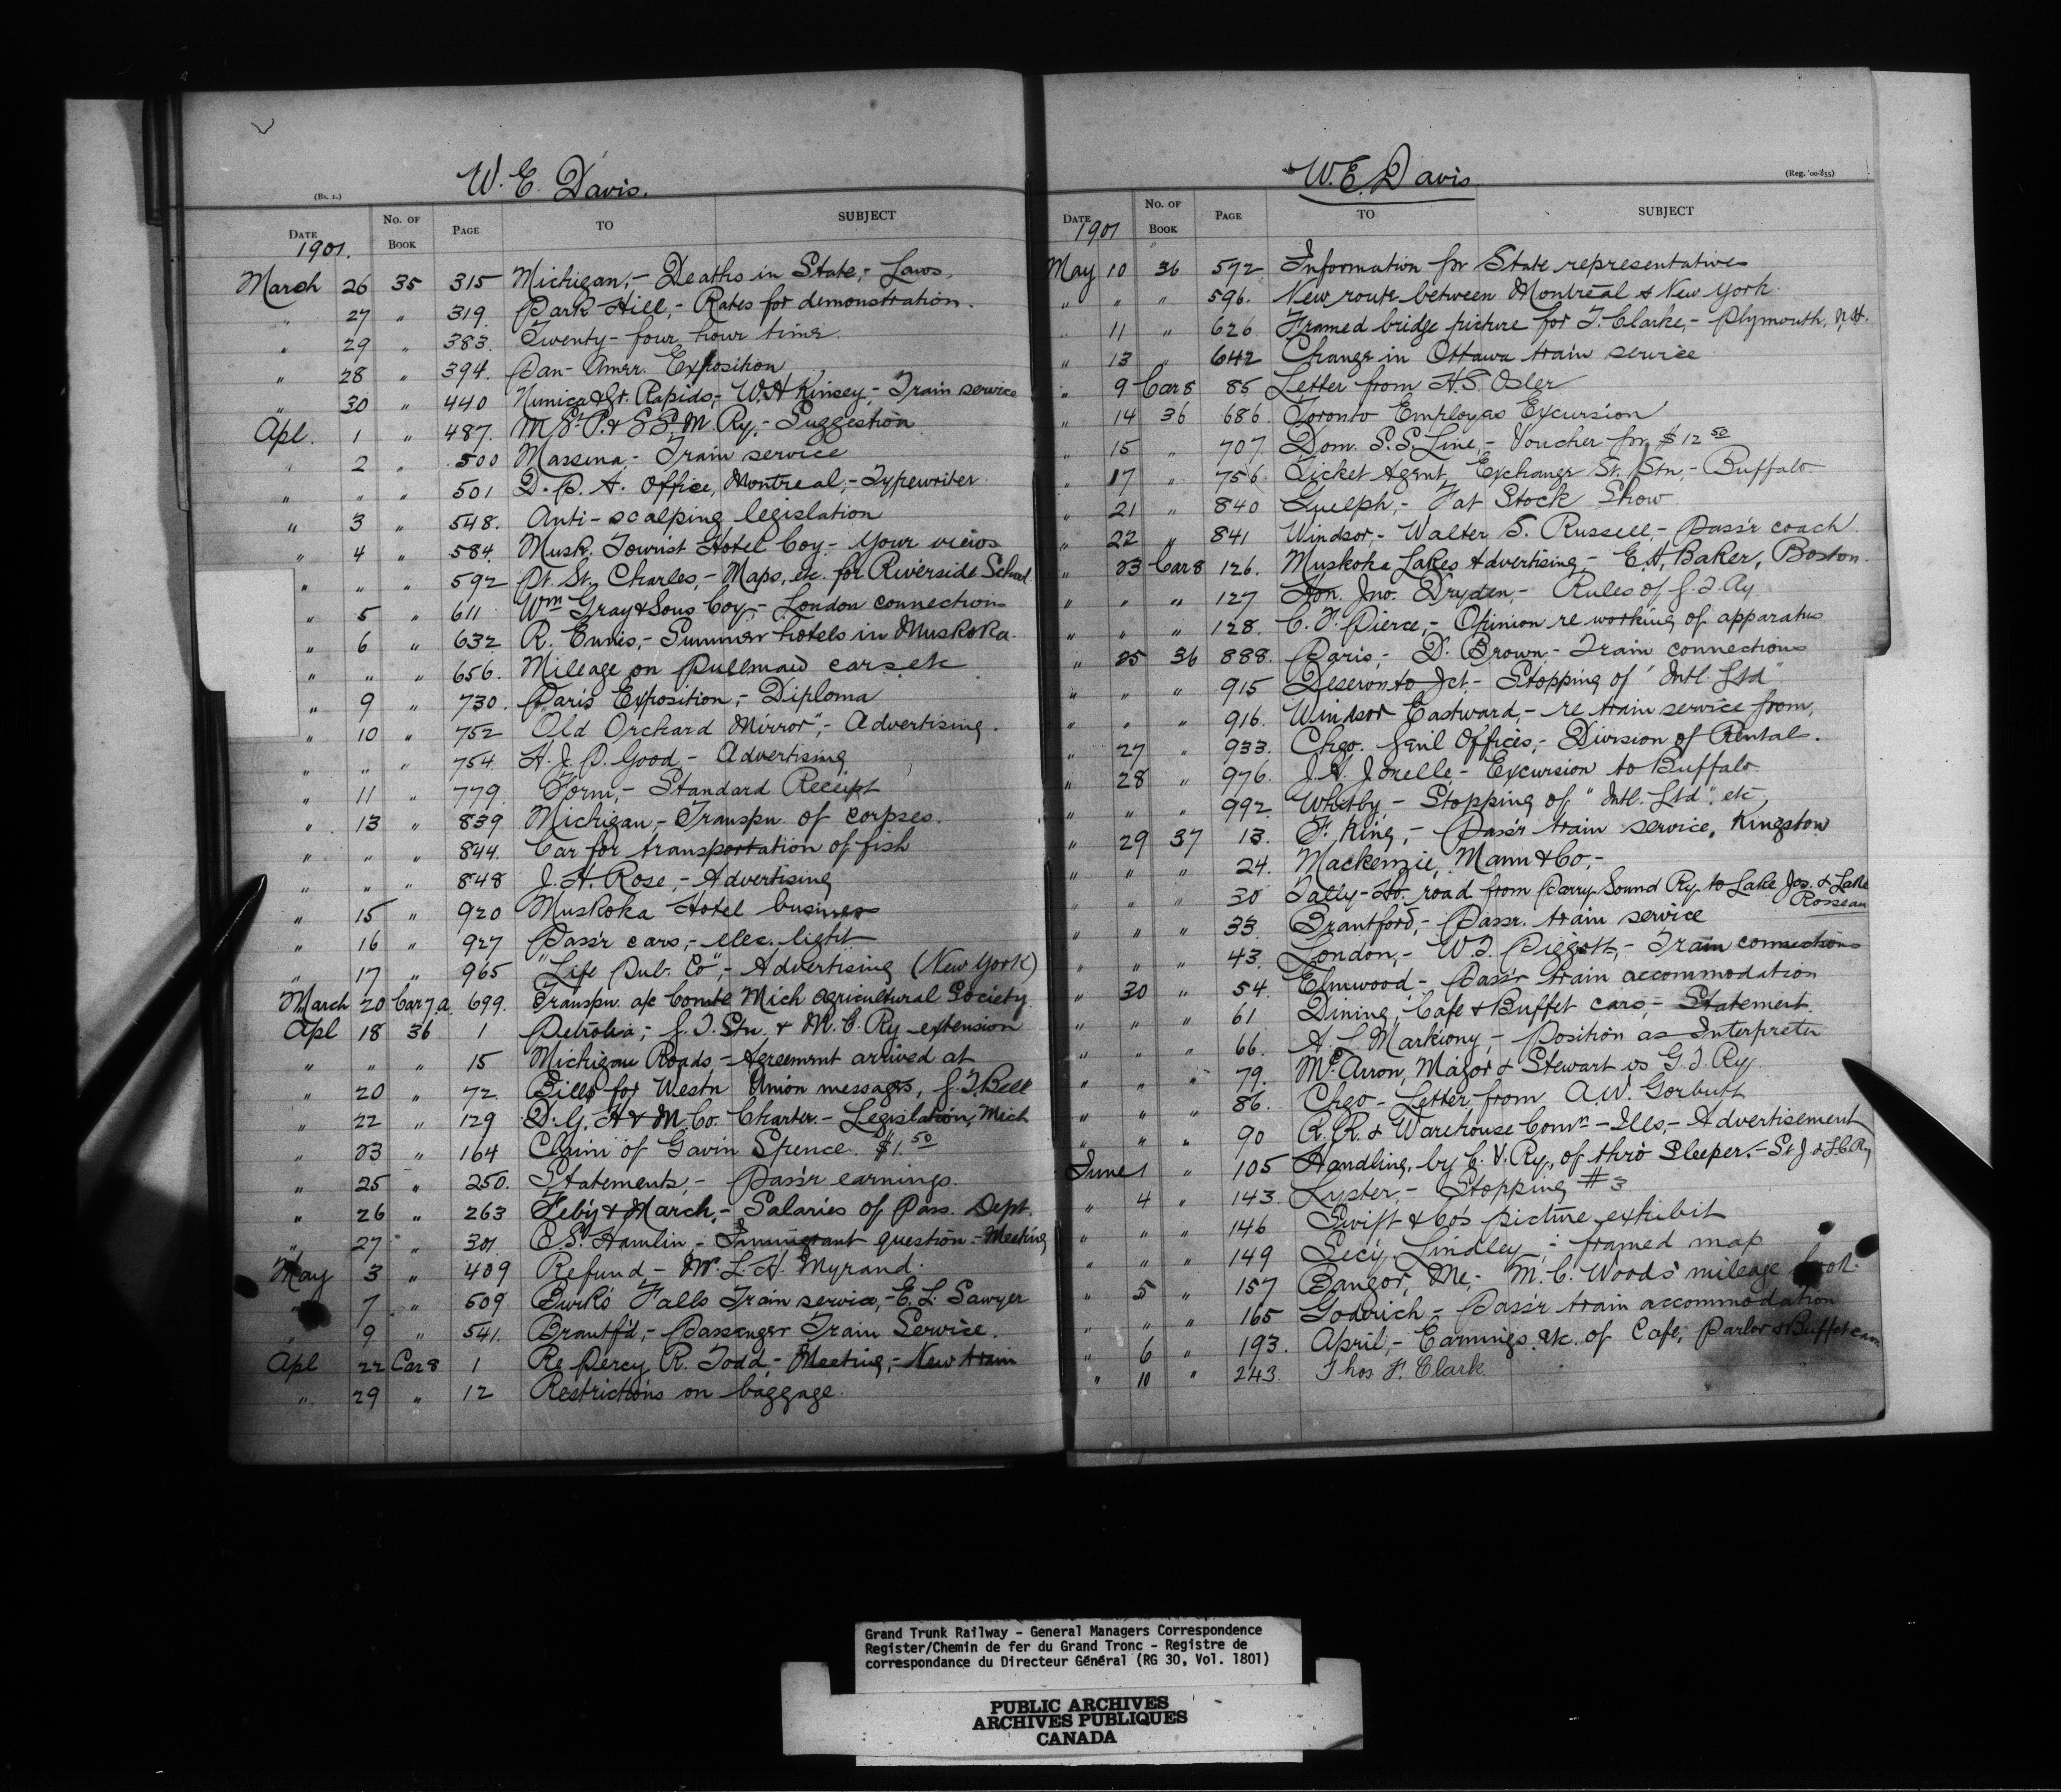 W. E. Davis.
(Bs. 1.)
DATE No. OF BOOK PAGE TO SUBJECT
1901.
March 26 35 315 Michigan,- Deaths in State,- Laws.
" 27 " 319. Park Hill,- Rates for demonstration.
" 29 " 383. Twenty-four hour time.
" 28 " 394. Pan-Amer. Exposition
" 30 " 440 Nunica & Gr. Rapids,- W.H. Kinsey,- Train service
Apl. 1 " 487. M St. P. & S S M Ry.- Suggestion
" 2 " 500 Massena,- Train service
" " " 501 D. P. A. Office, Montreal,- Typewriter.
" 3 " 548. Anti-scalping legislation
" 4 " 584. Musk. Tourist Hotel Coy.- your views
" " " 592 Pt. St. Charles,- Maps, etc. for Riverside School
" 5 " 611 Wm Gray & Sons Coy.- London connections
" 6 " 632 R. Ennis,- Summer hotels in Muskoka.
" " " 656. Mileage on Pullman cars etc
" 9 " 730. Paris Exposition,- Diploma
" 10 " 752 "Old Orchard Mirror",- Advertising.
" " " 754. H. J. P. Good - Advertising
" 11 " 779. Form,- Standard Receipt
" 13 " 839 Michigan,- Transpn. of corpses.
" " " 844. Car for transportation of fish
" " " 848 J. H. Rose,- Advertising
" 15 " 920 Muskoka Hotel business
" 16 " 927 Pass'r cars,- elec. light
" 17 " 965 "Life Pub. Co",- Advertising (New York)
March 20 Car 7a 699. Transpn. a/c Comte Mich Agricultural Society
Apl 18 36 1 Petrolia,- G. T. Stn. & M. C. Ry extension
" " " 15 Michigan Roads - Agreement arrived at
" 20 " 72. Bills for Westn Union messages, G. T. Bell
" 22 " 129 D. G. H & M. Co. Charter.- Legislation, Mich
" 23 " 164 Claim of Gavin Spence. $1.50
" 25 " 250. Statements,- Pass'r earnings.
" 26 " 263 Feb'y & March,- Salaries of Pass. Dept.
" 27 " 301. C. S. Hamlin,- Immigrant question - Meeting
May 3 " 409 Refund - Mr. L. H. Myrand.
" 7 " 509 Burk's Falls Train service,- E. L. Sawyer
" 9 " 541. Brantf'd,- Passenger Train Service.
Apl 22 Car 8 1 Re Percy R. Todd.- Meeting,- New train
" 29 " 12 Restrictions on baggage.
W. E. Davis
(Reg. '00-855)
DATE No. OF BOOK PAGE TO SUBJECT
1901
May 10 36 572. Information for State representatives
" " " 596. New route between Montreal & New York.
" 11 " 626. Framed bridge picture for T. Clarke,- Plymouth, N.H.
" 13 " 642 Change in Ottawa train service
" 9 Car 8 85 Letter from H. S. Osler
" 14 36 686 Toronto Employees Excursion
" 15 " 707. Dom. S.S. Line,- Voucher for $12 50
" 17 " 756. Ticket Agent, Exchange St. Stn,- Buffalo.
" 21 " 840 Guelph,- Fat Stock Show
" 22 " 841 Windsor,- Walter S. Russell,- Pass'r coach
" 23 Car 8 126. Muskoka Lakes Advertising,- E. H. Baker, Boston.
" " " 127 Hon. Jno. Dryden,- Rules of G. T. Ry.
" " " 128. C. F. Pierce,- Opinion re working of apparatus
" 25 36 888. Paris,- D. Brown - Train connections
" " " 915 Deseronto Jct.- Stopping of "Intl. Ltd"
" " " 916. Windsor Eastward,- re train service from,
" 27 " 933. Chgo. Gen'l Offices,- Division of Rental.
" 28 " 976. J. H. Jonelle - Excursion to Buffalo.
" " " 992. Whitby - Stopping of "Intl. Ltd", etc,
" 29 37 13. F. King,- Pass'r train service, Kingston
" " " 24. Mackenzie, Mann & Co.,-
" " " 30 Tally-Ho. road from Parry Sound Ry. to Lake Jos. & Lake Rosseau
" " " 33. Brantford,- Passr. train service
" " " 43. London,- W. T. Piggott,- Train connections
" 30 " 54. Elmwood - Pass'r train accommodation
" " " 61 Dining, Cafe & Buffet cars,- Statement.
" " " 66. A. L. Markiony,- Position as Interpreter
" " " 79. McArron, Major & Stewart vs G. T. Ry.
" " " 86. Chgo - Letter from A. W. Gorbutt
" " " 90 R. R. & Warehouse Comn - Ills,- Advertisement
June 1 " 105 Handling, by C. V. Ry., of thro' Sleeper.- St J. & L. C. Ry
" 4 " 143. Lyster,- Stopping # 3
" " " 146 Swift & Co's picture exhibit
" " " 149 Secy. Lindley,- framed map
" 5 " 157 Bangor, Me,- M. C. Woods' mileage book.
" " " 165 Goderich - Pass'r train accommodation
" 6 " 193. April,- Earnings etc. of Cafe, Parlor & Buffet cars
" 10 " 243. Thos. F. Clark
Grand Trunk Railway - General Managers Correspondence
Register/Chemin de fer du Grand Tronc - Registre de
correspondance du Directeur Général (RG 30, Vol. 1801)
PUBLIC ARCHIVES
ARCHIVES PUBLIQUES
CANADA